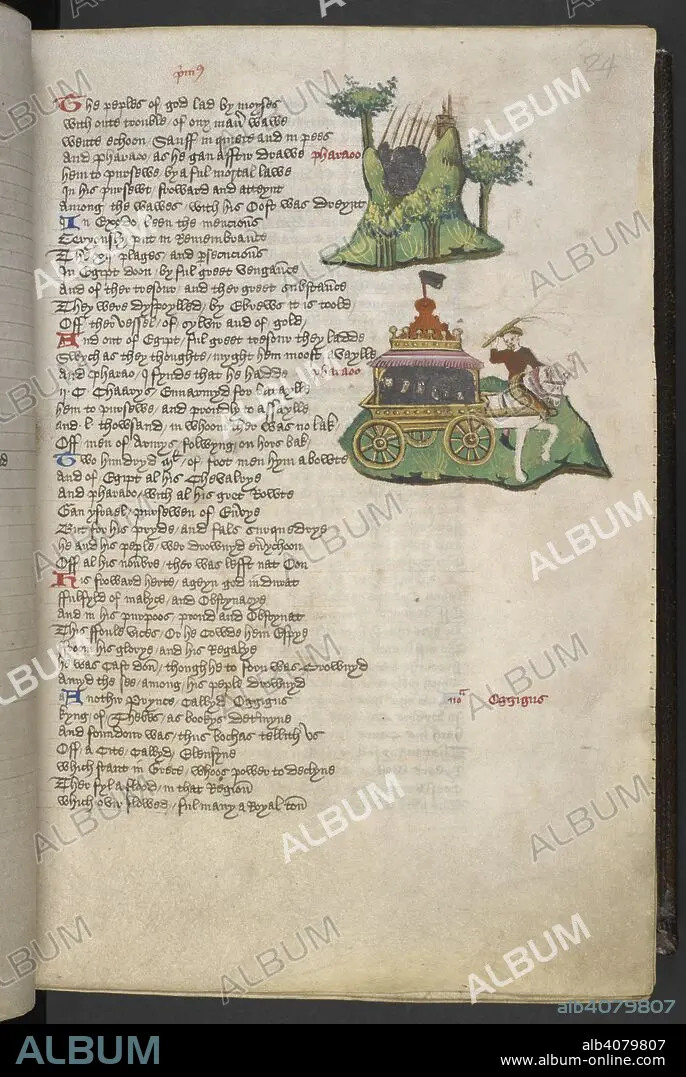 24
The peples of god lad by moyses
With oute trouble of ony man wawe
Wente echoon Sauff in quiete and in pees
And pharaoo as he gan affter drawe pharaoo
hem to pursewe by a ful mortal lawe
In his pursewt froward and atteynt
Among the wawes with his Oost was dreynt
In Exodo been the mencions
put in Remembrance
plages and persecucions
In Egipt doon by ful greet vengance
And of ther tresour and ther greet substance
They were dyspoylled by Ebrews it is toold
Off ther vessel of sylvir and of gold
And out of Egipt ful greet tresour they ladde
Swych as they thoughte myght hem moost avaylle
And pharao I fynde that he hadde pharaoo
ii C Chaarys Ennarmyd for bataylle
hem to pursewe and proudly tassaylle
And L thowsand in whoom ther was no lak
Off men of Armys folwyng on hors bak
Two hundryd of foot men hym abowte
And of Egipt al his Chevalrye
And pharaoo with al his gret Rowte
Gan ysrael pursewen of Envye
But for his pryde and fals surquedrye
he and his peple wer drownyd everychoon
Off al his noumbre ther was lefft nat Oon
His froward herte ageyn god indurat
ffulfyld of malyce and Obstynacye
And in his purpoos proud and Obstynat
This ffoule vices Or he Cowde hem Espye
his glorye and his Regalye
he was Cast doun though he to forn was Crownyd
Amyd the see among his peple drownyd
Anothir Prynce Callyd Oggigus Oggigus
kyng of Thebes as bookys determyne
And foundour was thus bochas tellith us
Off a Cite Callyd Elensyne
which stant in Grece whoos power to declyne
Ther fyl a flood in that Regioun
which ovir flowed ful many a Royal toun
ALBUM
alb4079807
alb4079807
www.album-online.com